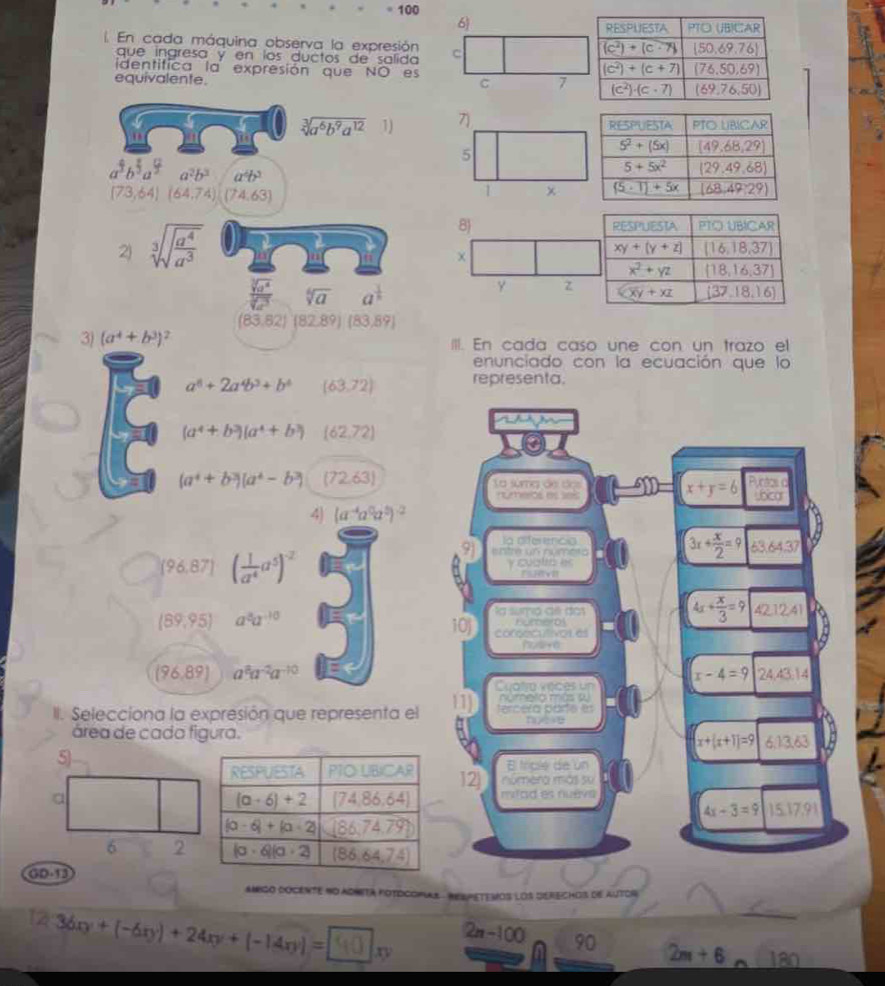 100
I. En cada máquina observa la expresión
que ingresa y en los ductos de salida
identifica la expresión que NO es
equivalente.
∛(a⁶b⁹a¹²) 1)
a^(6/3) b^(9/3) a^(12/3) a²b³ a⁶b³
(73,64) (64,74) (74,63)
2) ∛√(a⁴/a³)
⁶√a a^(1/6)
(83,82) (82,89) (83,89)
3) (a⁴ + b³)²
a⁸ + 2a⁴b³ + b⁶ (63,72)
(a⁴ + b³)(a⁴ + b³) (62,72)
(a⁴ + b³)(a⁴ − b³) (72,63)
4) (a⁻⁴a⁰a⁵)⁻²
(96,87) (1/a⁴ a⁵)⁻²
(89,95) a⁸a⁻¹⁰
(96,89) a⁸a⁻²a⁻¹⁰
II. Selecciona la expresión que representa el
área de cada figura.
5)
a
6 2
RESPUESTA PTO UBICAR
(a · 6) + 2 (74,86,64)
(a · 6) + (a · 2) (86,74,79)
(a · 6)(a · 2) (86,64,74)
GD-13
6)
C
C 7
RESPUESTA PTO UBICAR
(c²) + (c · 7) (50,69,76)
(c²) + (c + 7) (76,50,69)
(c²)·(c · 7) (69,76,50)
7)
5
1 x
RESPUESTA PTO UBICAR
5² + (5x) (49,68,29)
5 + 5x² (29,49,68)
(5 · 1) + 5x (68,49,29)
8)
x
y z
RESPUESTA PTO UBICAR
xy + (y + z) (16,18,37)
x² + yz (18,16,37)
xy + xz (37,18,16)
III. En cada caso une con un trazo el
enunciado con la ecuación que lo
representa.
La suma de dos
números es seis
x + y = 6 Puntos a
ubicar
9) la diferencia
entre un número
y cuatro es
nueve
3x + x/2 = 9 63,64,37
10) la suma de dos
números
consecutivos es
nueve
4x + x/3 = 9 42,12,41
11) Cuatro veces un
número más su
tercera parte es
nueve
x − 4 = 9 24,43,14
12) El triple de un
número más su
mitad es nueve
x+(x+1)=9 6,13,63
4x − 3 = 9 15,17,91
AMIGO DOCENTE NO ADMITA FOTOCOPIAS - RESPETEMOS LOS DERECHOS DE AUTOR
12) 36xy + (−6xy) + 24xy + (−14xy) = 40 xy
2n−100 90
2m + 6 180